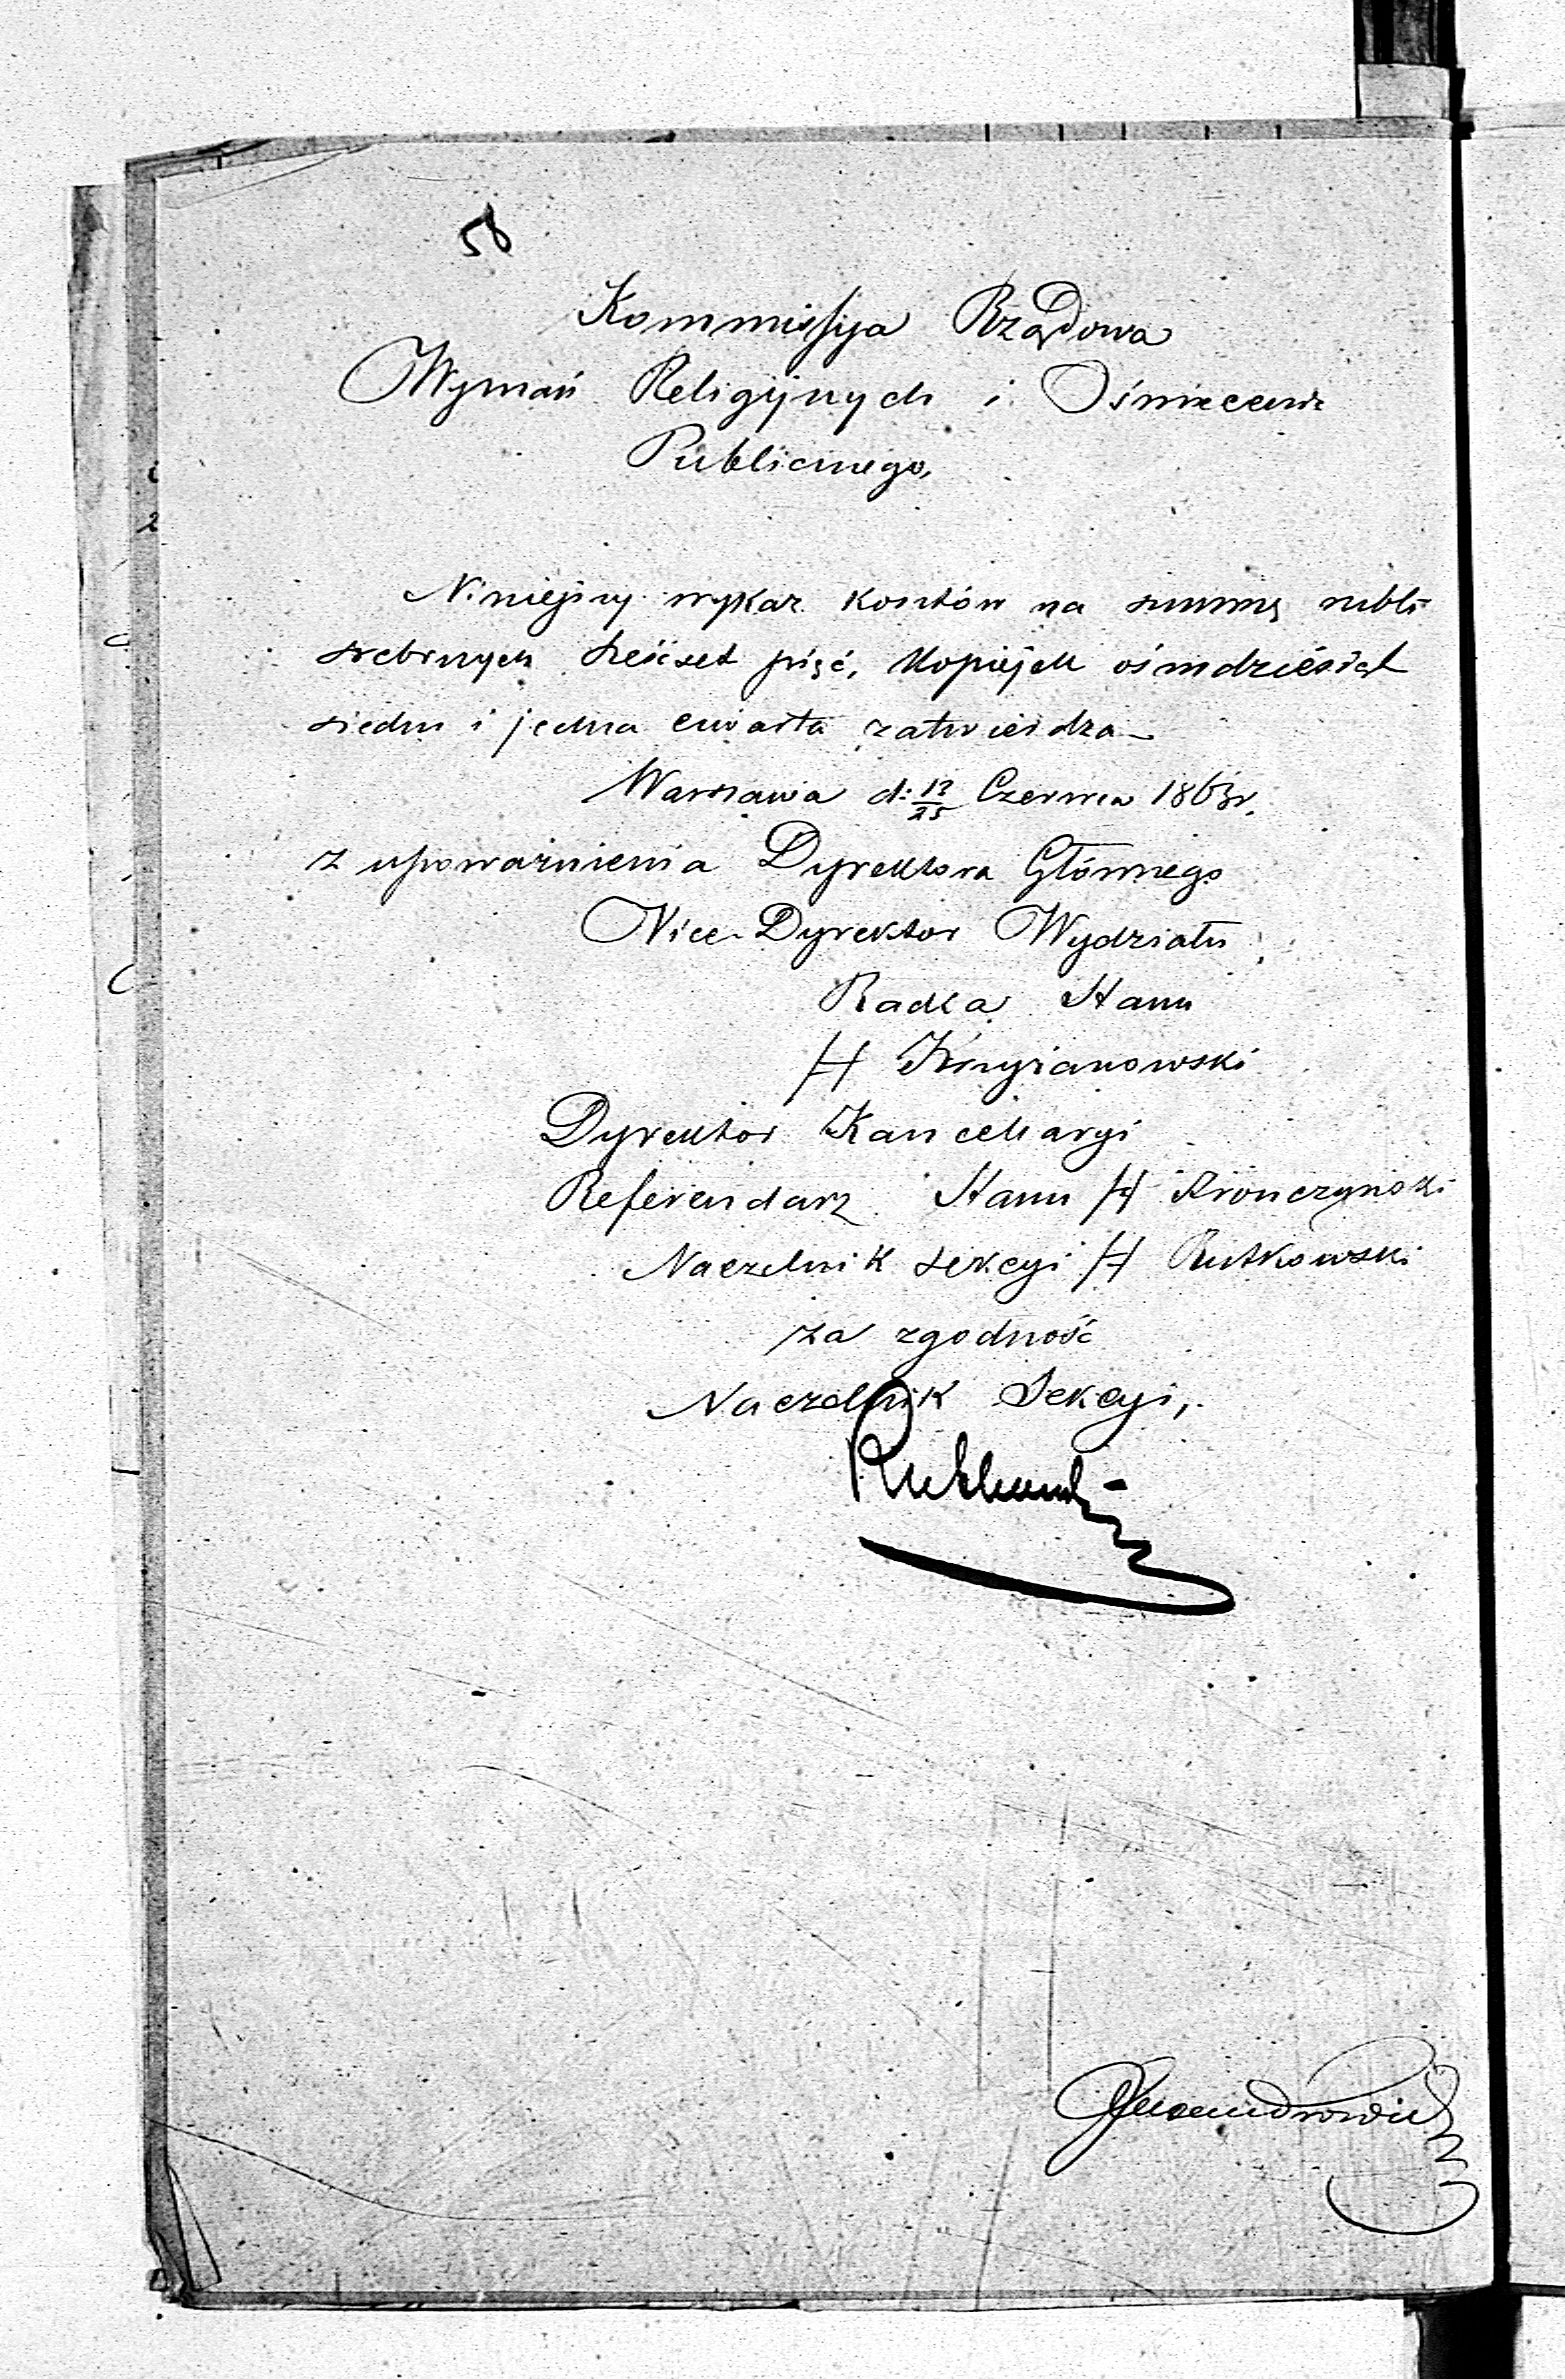 58
Kommissyja Rządowa
Wyznań Religijnych i Oświecenia
Publicznego,
Niniejszy wykaz kosztów na summę rubli
srebrnych sześćset pięć, kopiejek ośmdziesiąt
siedm i jedna czwarta zatwierdza
Warszawa d: 13/25 Czerwca 1863 r.
z upoważnienia Dyrektora Głównego
Vice-Dyrektor Wydziału
Radca Stanu
Krzyżanowski
Dyrektor Kancellaryi
Referendarz Stanu Stronczyński
Naczelnik Sekcyi Rutkowski
za zgodność
Naczelnik Sekcyi,
Rutkowski